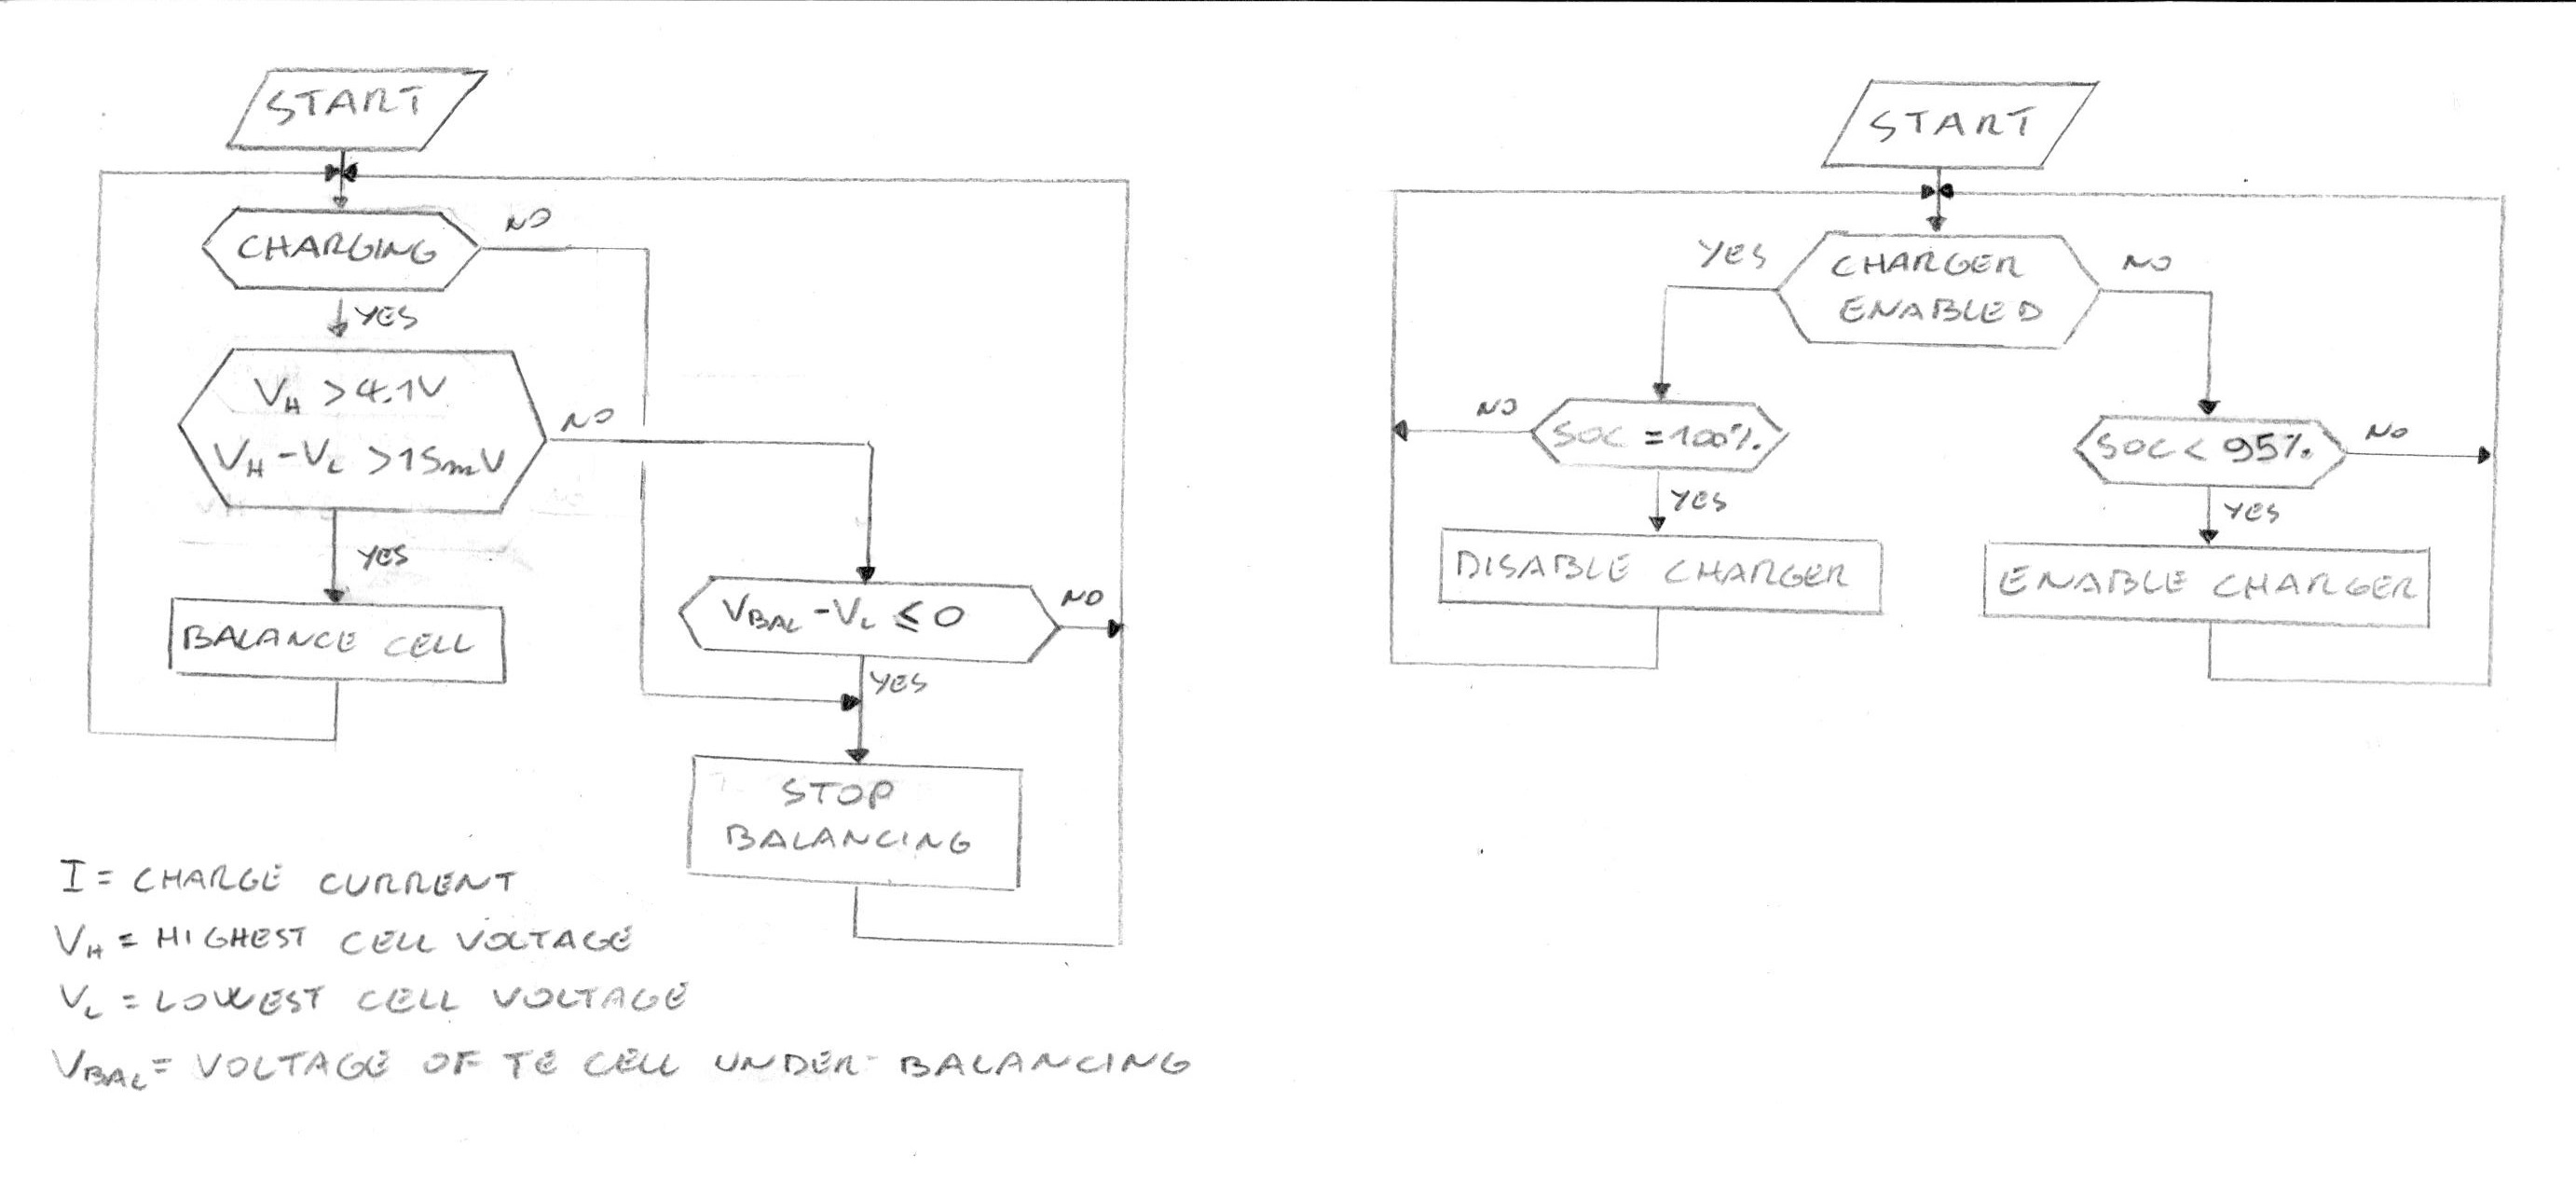 START
CHARGING
NO
YES
V_H > 4.1V
V_H - V_L > 15mV
NO
YES
BALANCE CELL
V_BAL - V_L ≤ 0
NO
YES
STOP
BALANCING
I = CHARGE CURRENT
V_H = HIGHEST CELL VOLTAGE
V_L = LOWEST CELL VOLTAGE
V_BAL = VOLTAGE OF TE CELL UNDER BALANCING
START
CHARGER
ENABLED
YES
NO
SOC = 100%
NO
YES
DISABLE CHARGER
SOC < 95%
NO
YES
ENABLE CHARGER